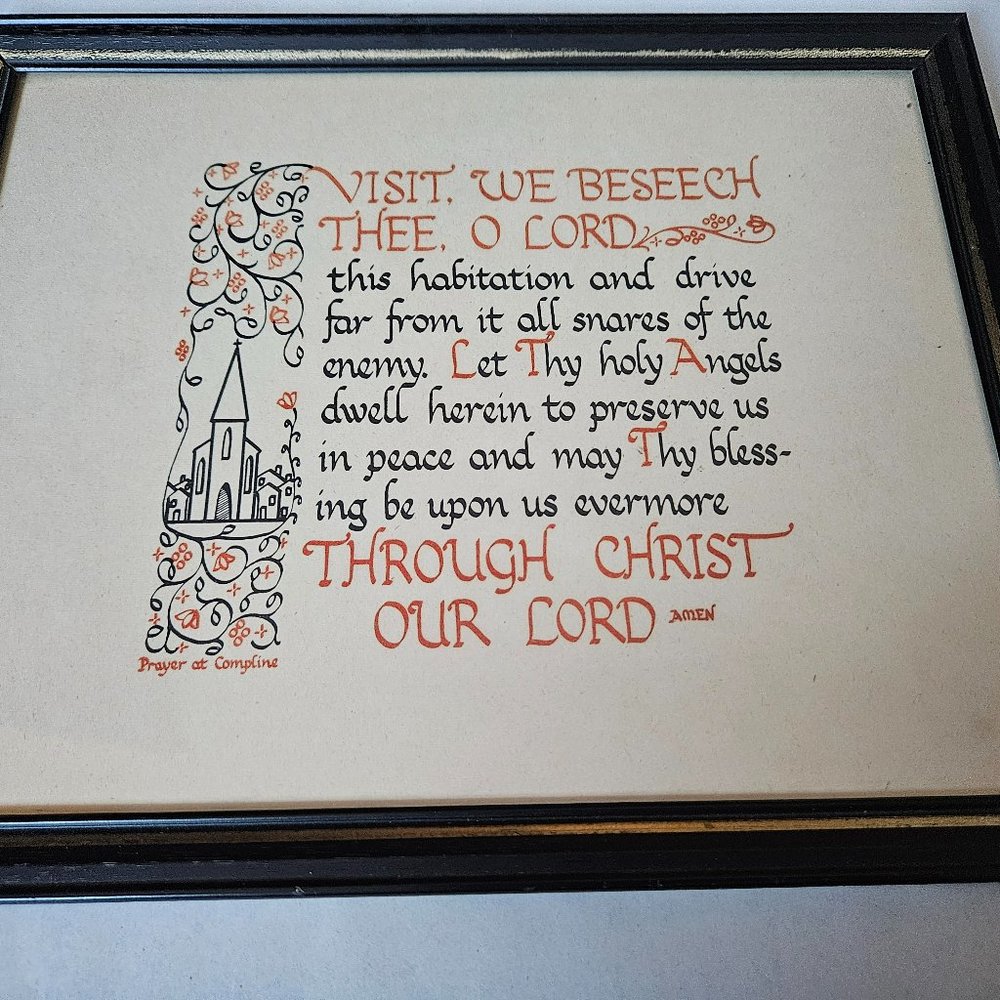 VISIT, WE BESEECH
THEE, O LORD
this habitation and drive
far from it all snares of the
enemy. Let Thy holy Angels
dwell herein to preserve us
in peace and may Thy bless-
ing be upon us evermore
THROUGH CHRIST
OUR LORD AMEN
Prayer at Compline